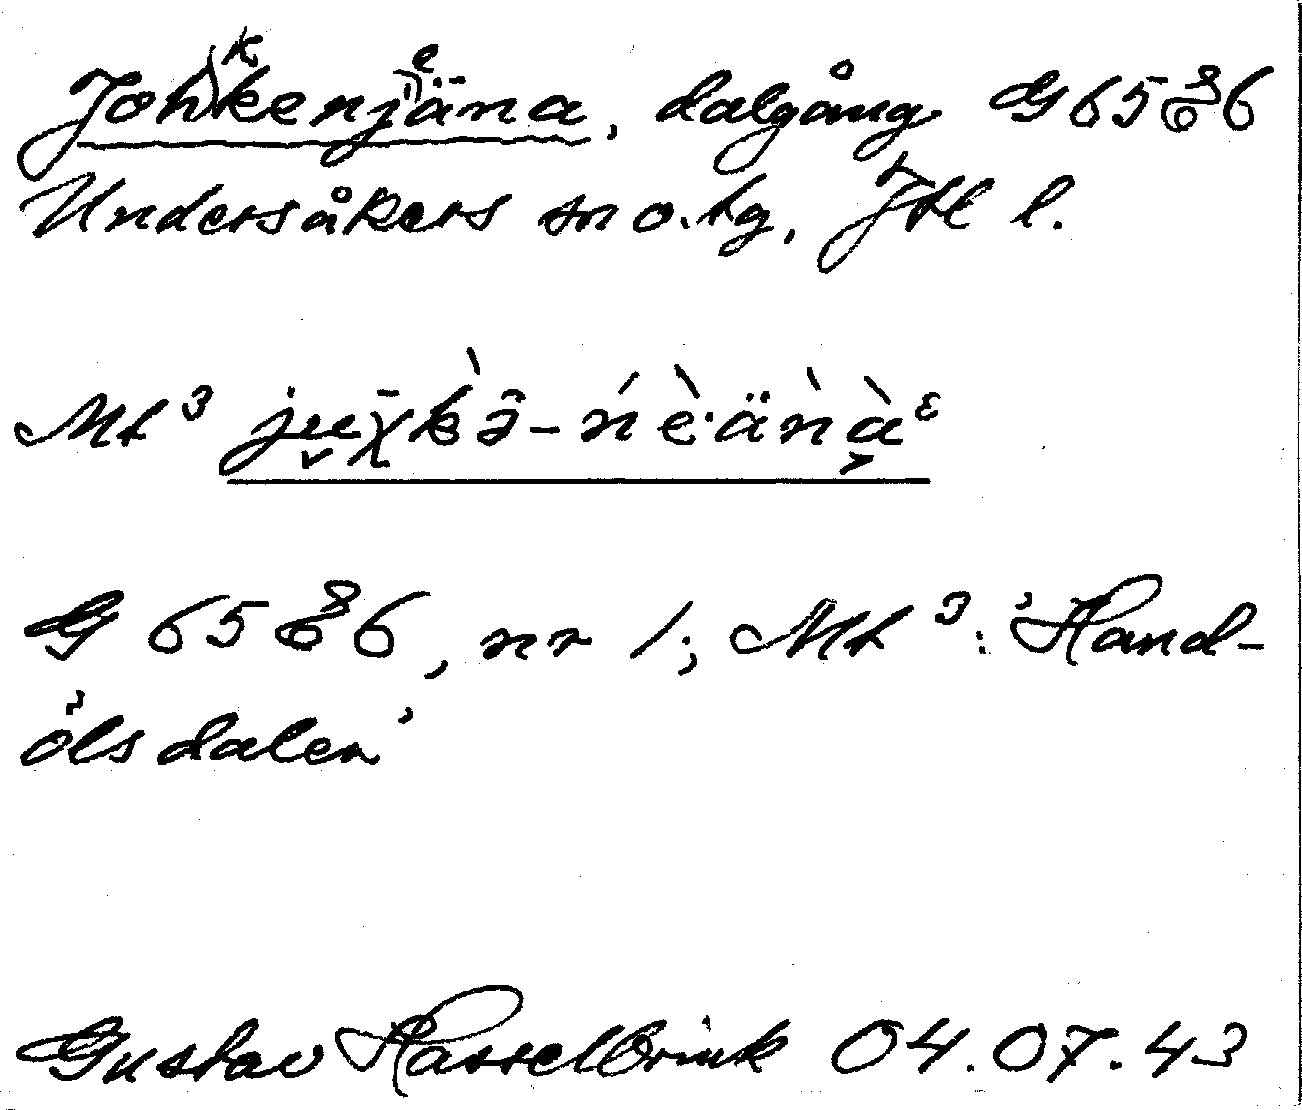 Johkenjäna, dalgång G6586
Undersåkers sn o. tg, Jtl l.
Mt³
G 6586, nr 1; Mt³: 'Hand-
ölsdalen'
Gustav Hasselbrink 04.07.43